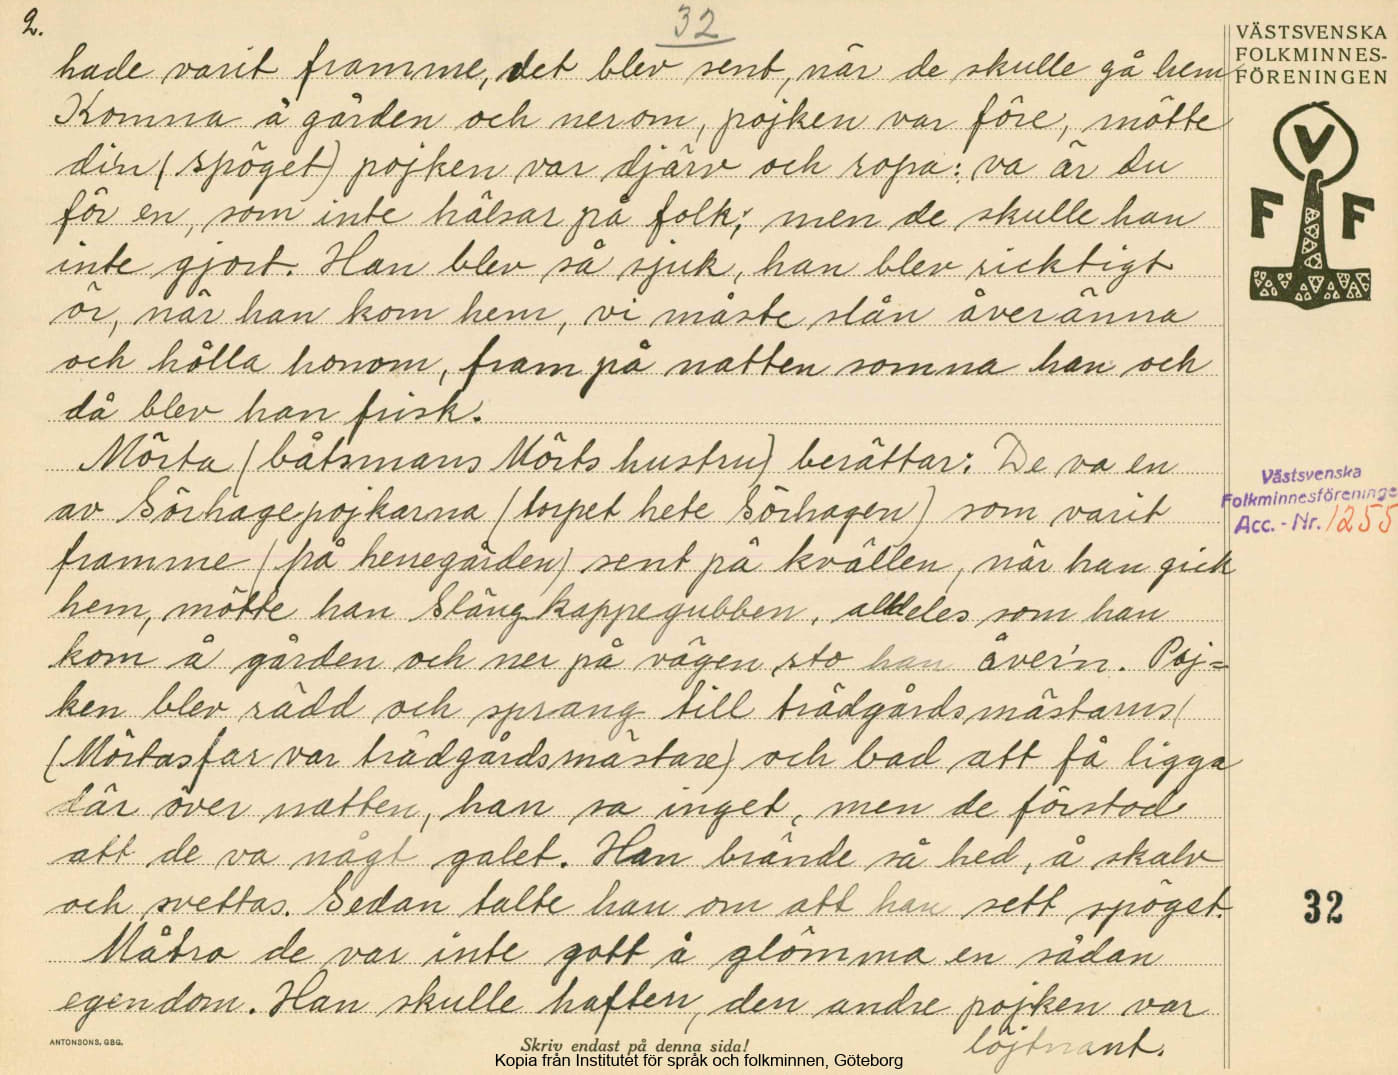 2.
32
hade varit framme, det blev sent, när de skulle gå hem
Komna å gården och nerom, pojken var före, mötte
di'n (spöget) pojken var djärv och ropa: va är du
för en, som inte hälsar på folk; men de skulle han
inte gjort. Han blev så sjuk, han blev ricktigt
ör, när han kom hem, vi måste slån åveränna
och hålla honom, fram på natten somna han och
då blev han frisk.
Mörta (båtsmans Mörts hustru) berättar: De va en
av Sörhagepojkarna (torpet hete Sörhagen) som varit
framme (på herregården) sent på kvällen, när han gick
hem, mötte han Slängkappegubben, alldeles som han
kom å gården och ner på vägen, sto han åver'n. Poj=
ken blev rädd och sprang till trädgårdsmästarns
(Mörtas far var trädgårdsmästare) och bad att få ligga
där över natten, han sa inget, men de förstod
att de va någt galet. Han brände så hed, å skalv
och svettas. Sedan talte han om att han sett spöget.
Måtro de var inte gott å glömma en sådan
egendom. Han skulle haften, den andre pojken var
löjtnant.
VÄSTSVENSKA
FOLKMINNES-
FÖRENINGEN
V
F F
Västsvenska
Folkminnesföreninge
Acc. - Nr. 1255
32
ANTONSONS, GBG.
Skriv endast på denna sida!
Kopia från Institutet för språk och folkminnen, Göteborg